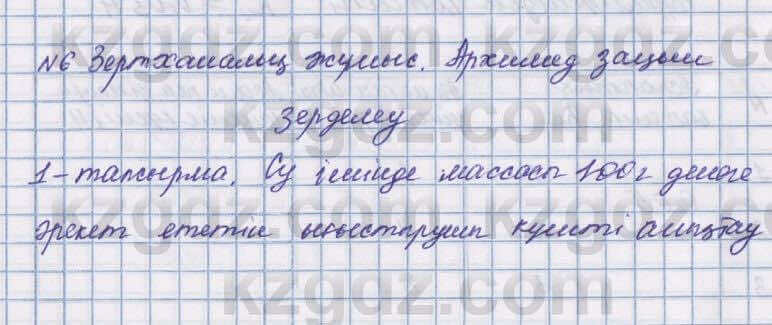 №6 Зертханалық жұмыс. Архимед заңын
зерделеу
1-тапсырма. Су ішінде массасы 100г денеге
әрекет ететін ығыстырушы күшті анықтау
kzgdz.com